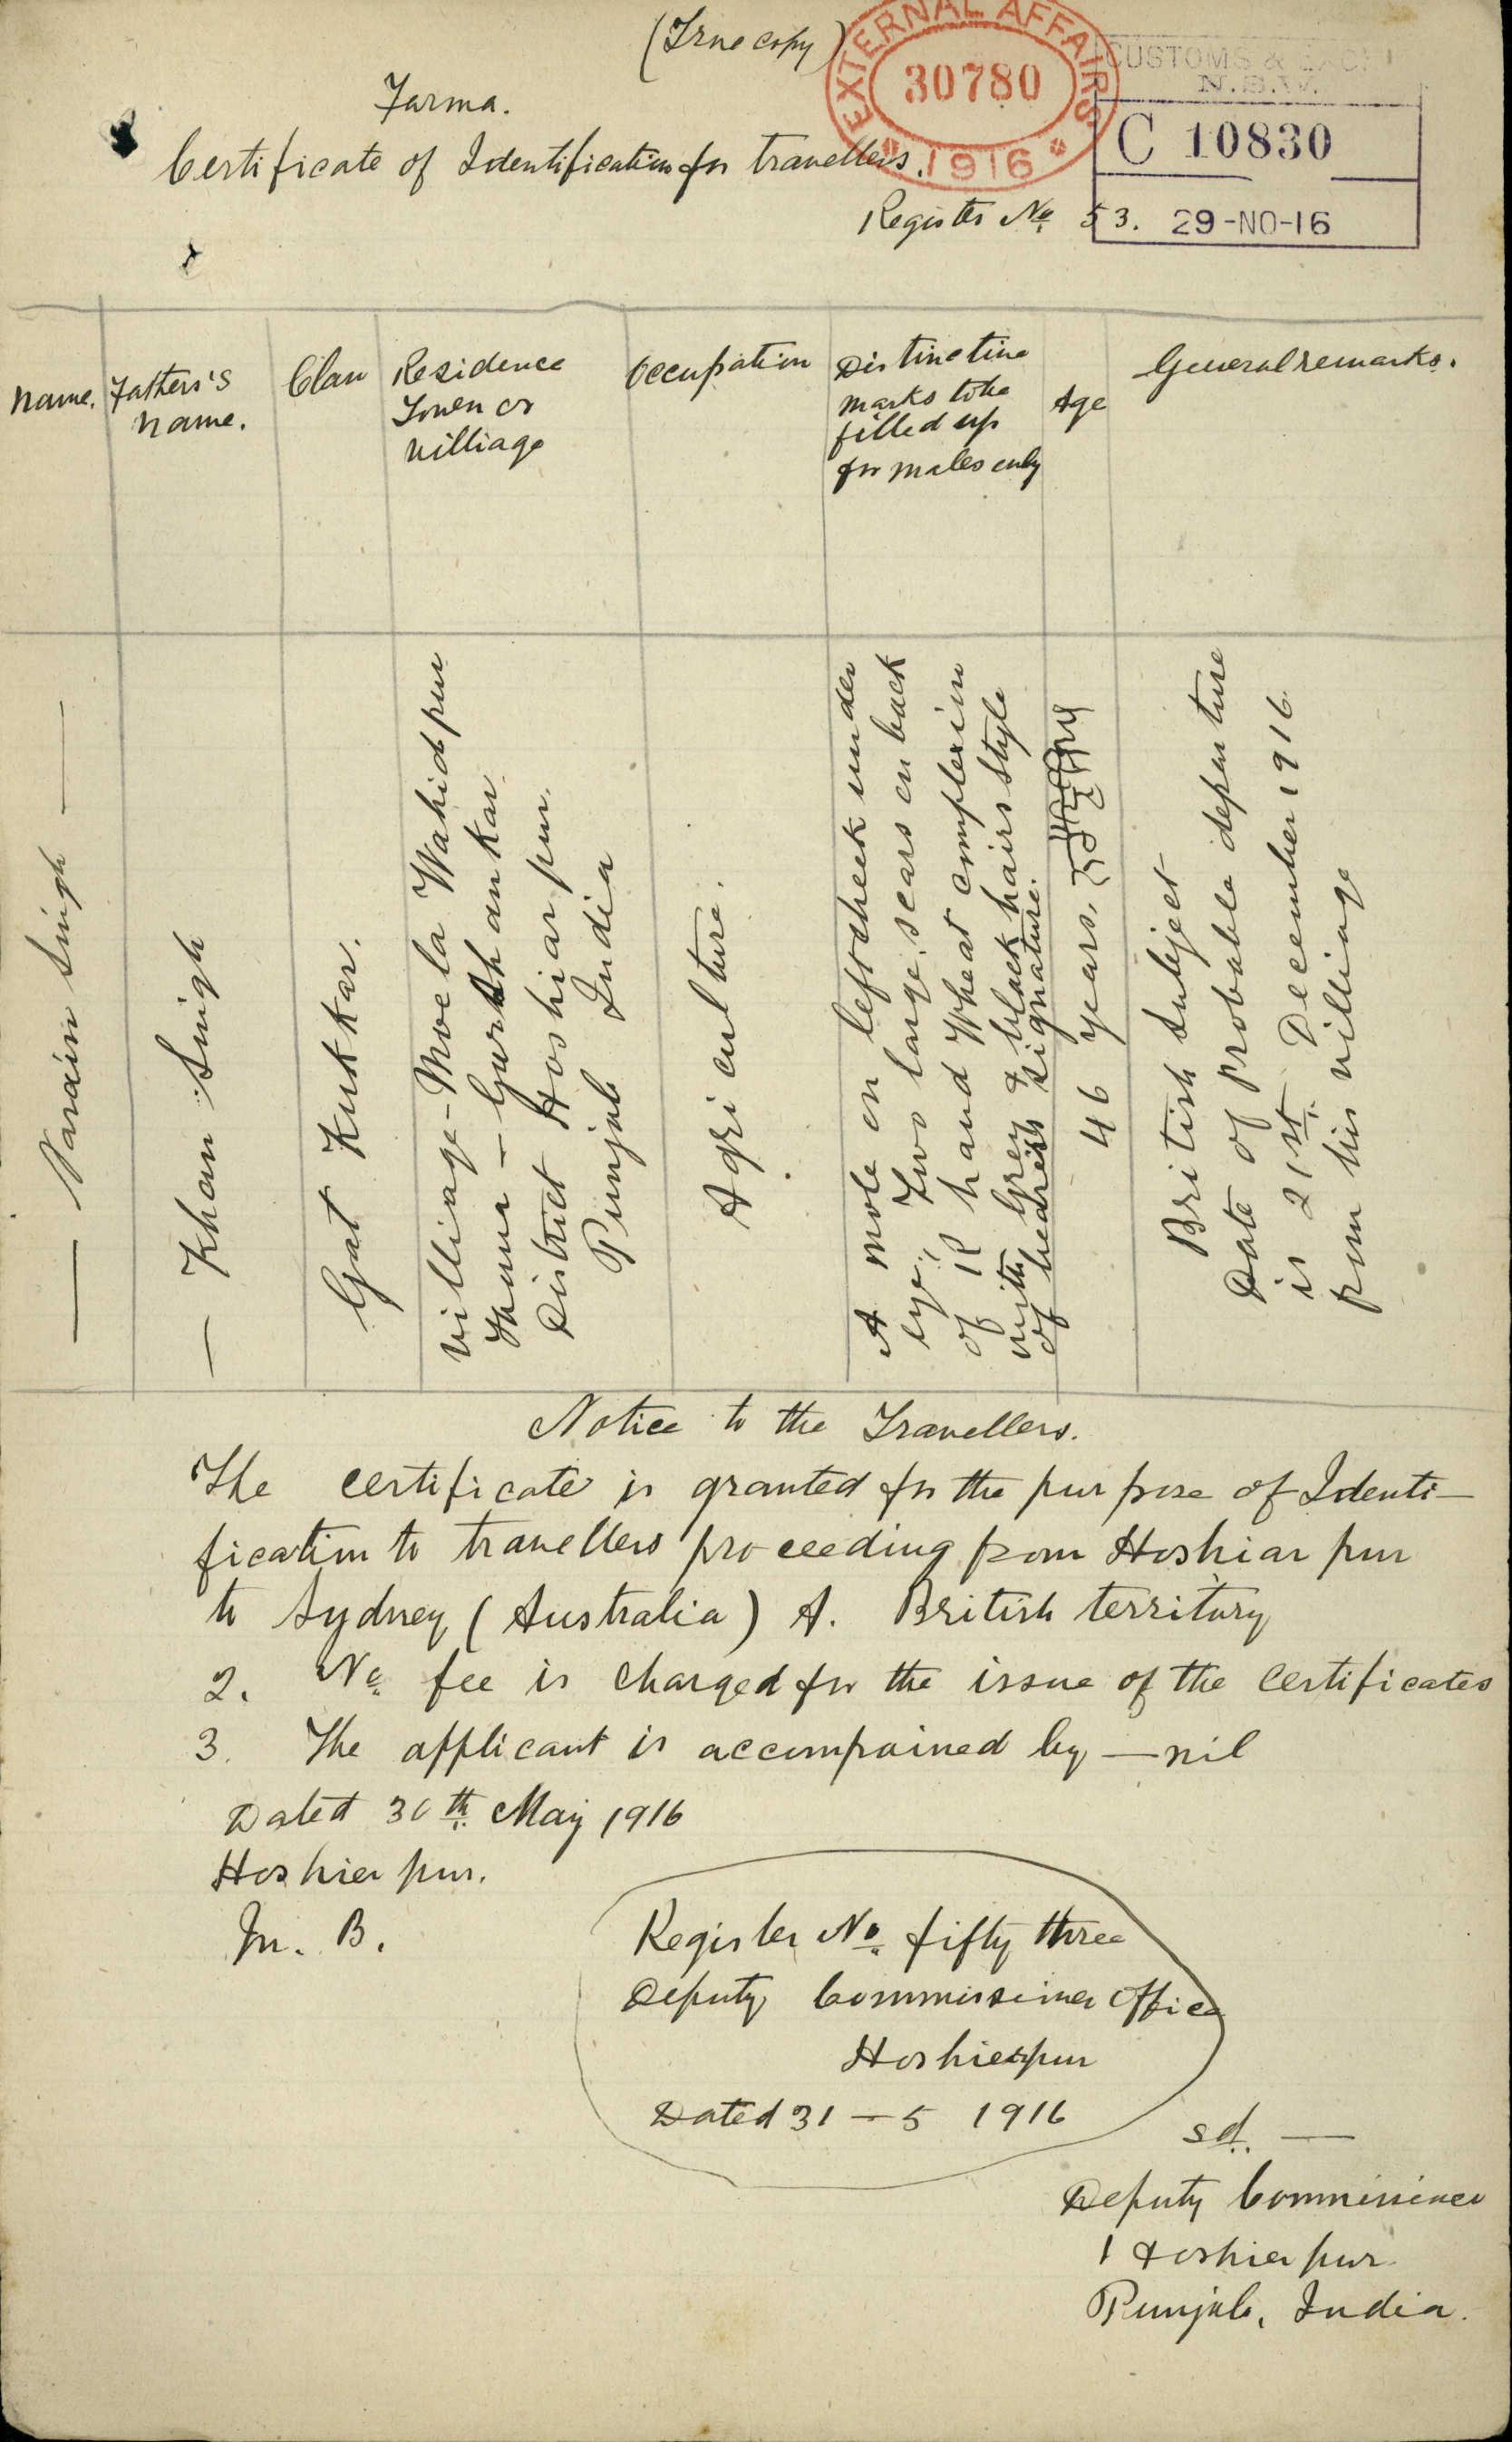 (True copy)
EXTERNAL AFFAIRS
30780
* 1916 *
CUSTOMS & EXCI
N.S.W.
C 10830
29-NO-16
Farma.
Certificate of Identification for travellers.
Register No. 53.
Name.
Father's
Name.
Clan
Residence
Town or
Villiage
Occupation
Distinctive
marks to be
filled up
for males only
Age
General remarks.
— Narain Singh —
— Khan Singh
Gat Kukkar.
Villiage - Moela Wahidpur
Thana - Garshankar
District Hoshiarpur.
Punjab India
Agriculture.
A mole on left cheek under
eye: Two large scars on back
of R hand Wheat complexion
with Grey & black hairs style
of signature.
46 years.
British Subject
Date of probable departure
is 21st December 1916
from his villiage
Notice to the Travellers.
The certificate is granted for the purpose of Identi-
fication to travellers proceeding from Hoshiar pur
to Sydney (Australia) A. British territory
2. No fee is charged for the issue of the certificates
3. The applicant is accompained by — nil
Dated 30th May 1916
Hoshier pur.
M. B.
Register No. fifty three
Deputy Commissioner Office
Hoshierpur
Dated 31 - 5 1916
sd. —
Deputy Commissioner
Hoshier pur
Punjab, India.